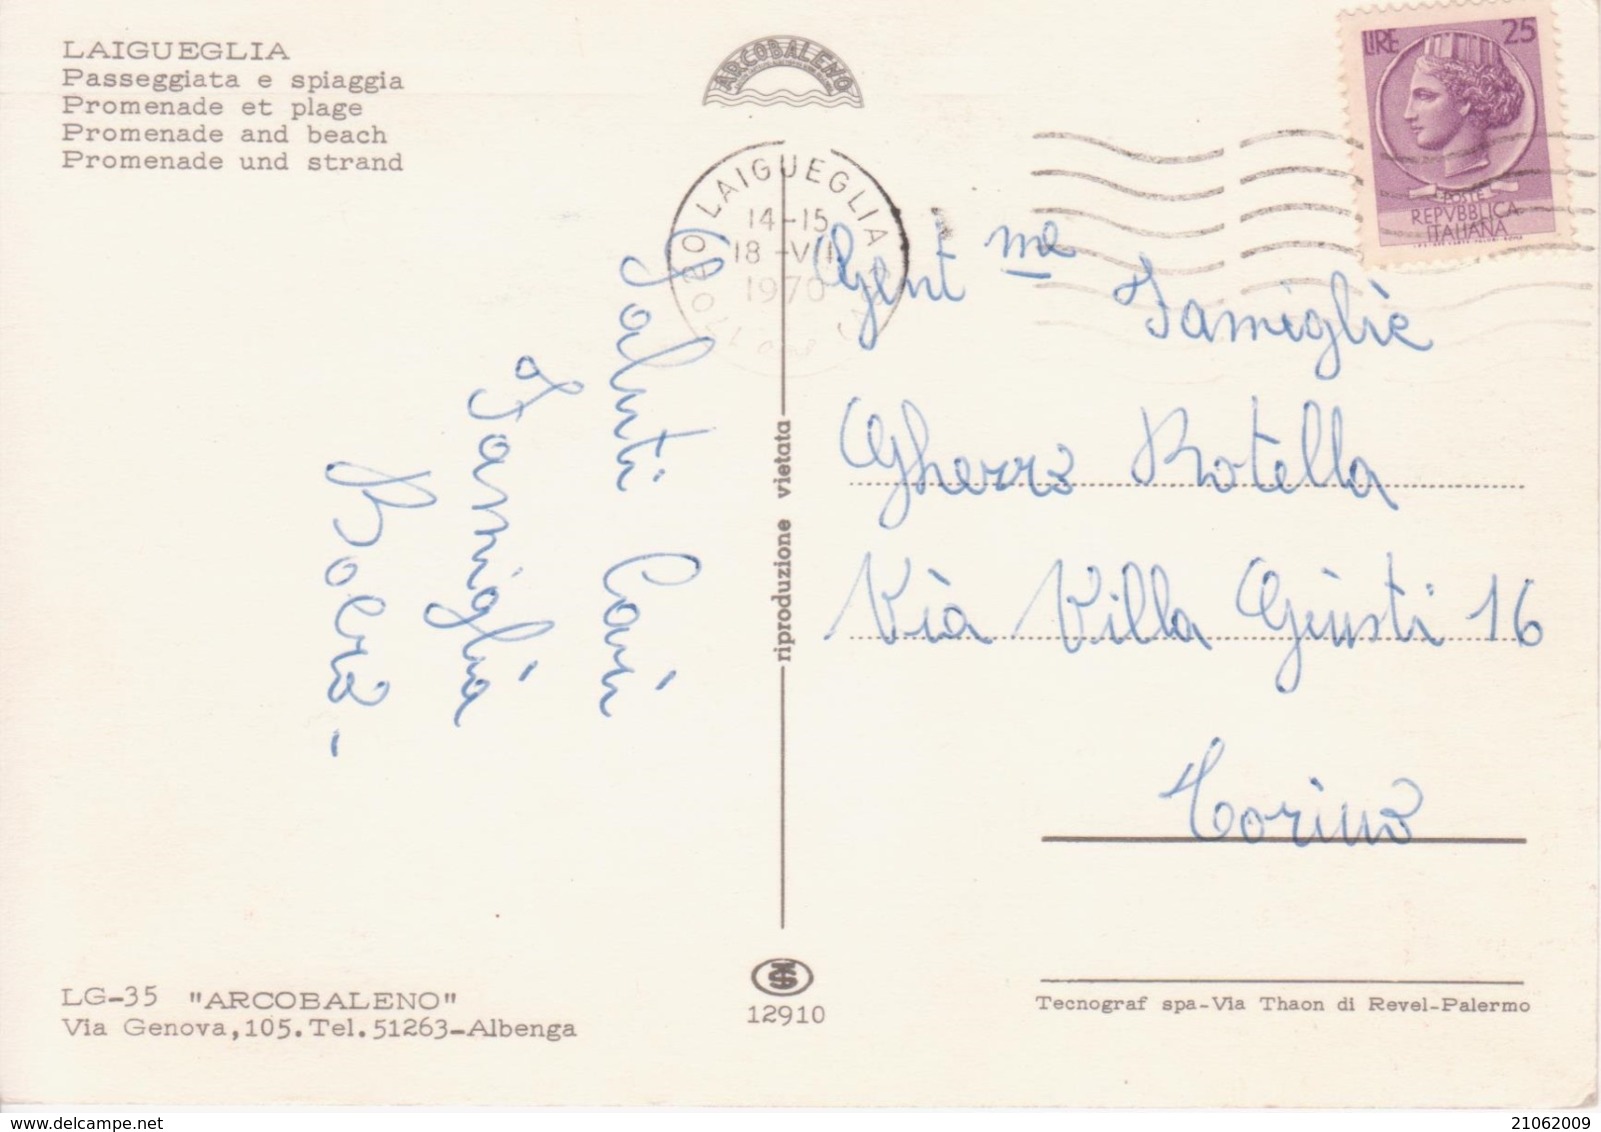 LAIGUEGLIA
Passeggiata e spiaggia
Promenade et plage
Promenade and beach
Promenade und strand
ARCOBALENO
LAIGUEGLIA
14-15
18-VII
1970
LIRE 25
POSTE
REPVBBLICA
ITALIANA
Saluti Cari
Famiglia
Boero-
riproduzione vietata
Gent me
Famiglie
Gherzo Rotella
Via Villa Giusti 16
Torino
LG-35 "ARCOBALENO"
Via Genova,105.Tel.51263-Albenga
12910
Tecnograf spa-Via Thaon di Revel-Palermo
21062009